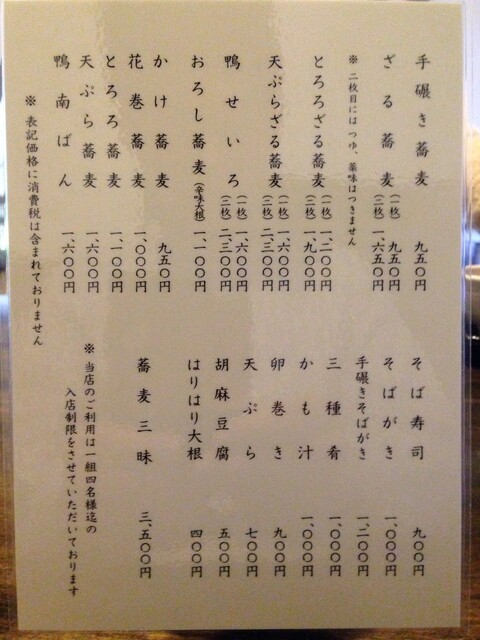 手碾き蕎麦 九五〇円
ざる蕎麦 (一枚) 九五〇円
(二枚) 一、六五〇円
※ 二枚目にはつゆ、薬味はつきません
とろろざる蕎麦 (一枚) 一、二〇〇円
(二枚) 一、九〇〇円
天ぷらざる蕎麦 (一枚) 一、六〇〇円
(二枚) 二、三〇〇円
鴨せいろ (一枚) 一、六〇〇円
(二枚) 二、三〇〇円
おろし蕎麦(辛味大根) 一、一〇〇円
かけ蕎麦 九五〇円
花巻蕎麦 一、〇〇〇円
とろろ蕎麦 一、一〇〇円
天ぷら蕎麦 一、六〇〇円
鴨南ばん 一、六〇〇円
※ 表記価格に消費税は含まれておりません
そば寿司 九〇〇円
そばがき 一、〇〇〇円
手碾きそばがき 一、二〇〇円
三種肴 一、〇〇〇円
かも汁 一、〇〇〇円
卵巻き 九〇〇円
天ぷら 七〇〇円
胡麻豆腐 五〇〇円
はりはり大根 四〇〇円
蕎麦三昧 三、五〇〇円
※ 当店のご利用は一組四名様迄の
入店制限をさせていただいております